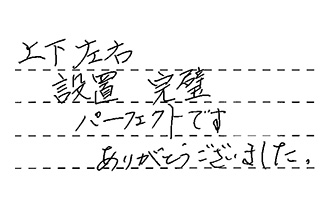 上下左右
設置 完璧
パーフェクトです
ありがとうございました。